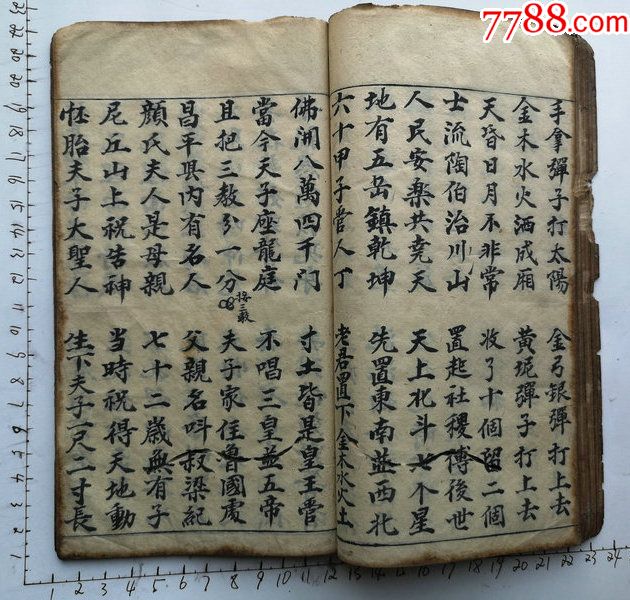 7788.com
手拿彈子打太陽 金弓銀彈打上去
金木水火洒成廂 黃坭彈子打上去
天昏日月不非常 收了十個留二個
士流陶伯治川山 置起社稷傳後世
人民安樂共堯天 天上北斗七个星
地有五岳鎮乾坤 先置東南並西北
六十甲子管人丁 老君置下金木水火土
佛開八萬四千門 寸土皆是皇王管
當今天子座龍庭 不唱三皇並五帝
且把三教分一分 夫子家住魯國處
接三教
昌平県内有名人 父親名呌叔梁紀
顔氏夫人是母親 七十二歳無有子
尼丘山上祝告神 當時祝得天地動
怀胎夫子大聖人 生下夫子一尺二寸長
1 2 3 4 5 6 7 8 9 10 11 12 13 14 15 16 17 18 19 20 21 22 23 24